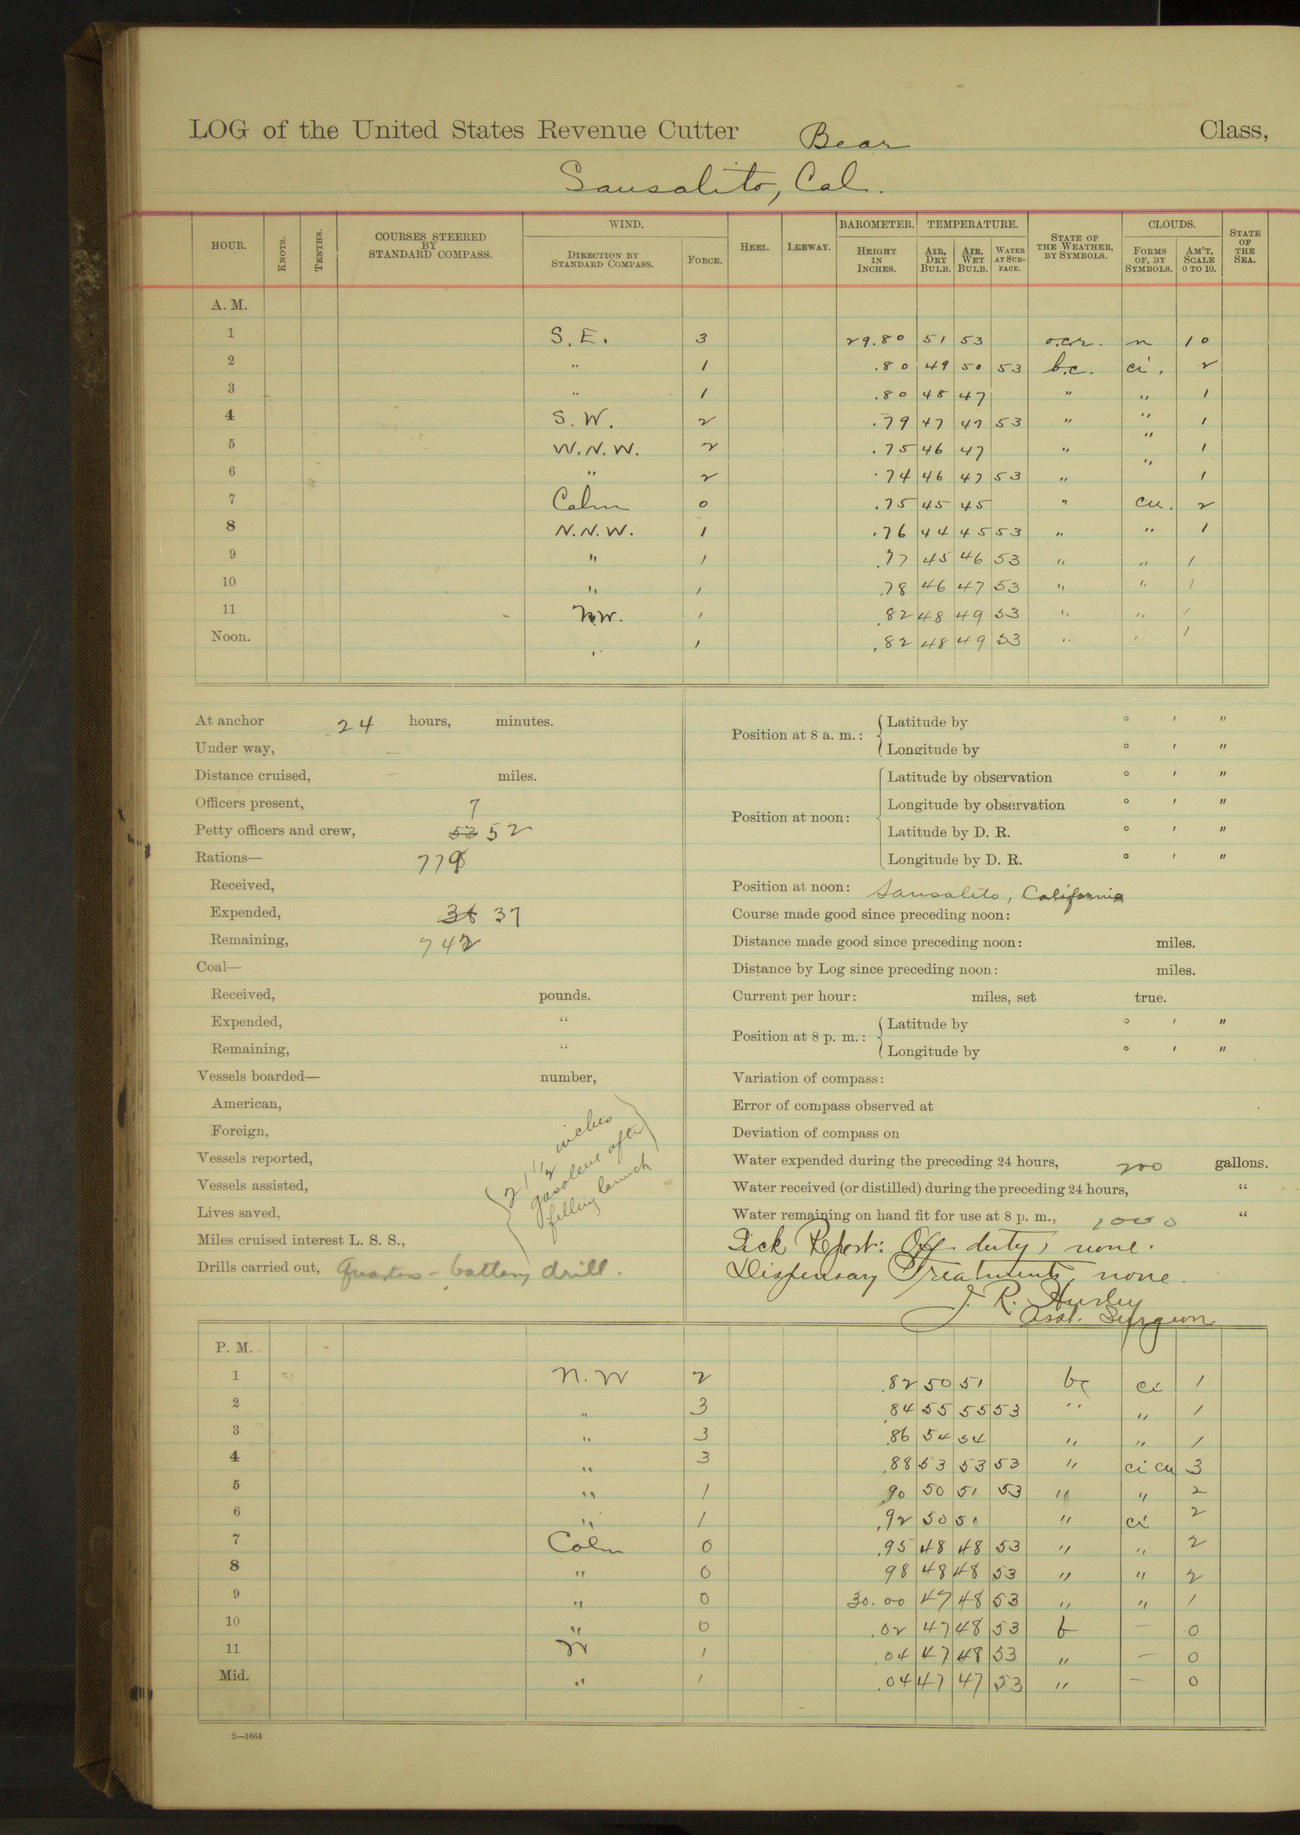 LOG of the United States Revenue Cutter Bear Class,
Sausalito, Cal.
HOUR. KNOTS. TENTHS. COURSES STEERED BY STANDARD COMPASS. WIND. DIRECTION BY STANDARD COMPASS. FORCE. HEEL. LEEWAY. BAROMETER. HEIGHT IN INCHES. TEMPERATURE. AIR, DRY BULB. AIR, WET BULB. WATER AT SURFACE. STATE OF THE WEATHER, BY SYMBOLS. CLOUDS. FORMS OF, BY SYMBOLS. AM'T, SCALE 0 TO 10. STATE OF THE SEA.
A. M.
1 S. E. 3 29.80 51 53 o.c.r. n 10
2 " 1 .80 49 50 53 b.c. ci. 2
3 " 1 .80 48 47 " " 1
4 S. W. 2 .79 47 47 53 " " 1
5 W. N. W. 2 .75 46 47 " " 1
6 " 2 .74 46 47 53 " " 1
7 Calm 0 .75 45 45 " cu. 2
8 N. N. W. 1 .76 44 45 53 " " 1
9 " 1 .77 45 46 53 " " 1
10 " 1 .78 46 47 53 " " 1
11 N.W. 1 .82 48 49 53 " " 1
Noon. " 1 .82 48 49 53 " " 1
At anchor 24 hours, minutes.
Under way, —
Distance cruised, — miles.
Officers present, 7
Petty officers and crew, 53 52
Rations— 779
Received,
Expended, 36 37
Remaining, 742
Coal—
Received, pounds.
Expended, "
Remaining, "
Vessels boarded— number,
American,
Foreign,
Vessels reported,
Vessels assisted,
Lives saved,
Miles cruised interest L. S. S.,
Drills carried out, Quarters - battery drill.
21 1/2 inches
gasolene after
filling launch
Position at 8 a. m.: Latitude by ° ′ ″
Longitude by ° ′ ″
Position at noon: Latitude by observation ° ′ ″
Longitude by observation ° ′ ″
Latitude by D. R. ° ′ ″
Longitude by D. R. ° ′ ″
Position at noon: Sausalito, California
Course made good since preceding noon:
Distance made good since preceding noon: miles.
Distance by Log since preceding noon: miles.
Current per hour: miles, set true.
Position at 8 p. m.: Latitude by ° ′ ″
Longitude by ° ′ ″
Variation of compass:
Error of compass observed at
Deviation of compass on
Water expended during the preceding 24 hours, 200 gallons.
Water received (or distilled) during the preceding 24 hours, "
Water remaining on hand fit for use at 8 p. m., 1000 "
Sick Report: Off duty, none.
Dispensary Treatments, none.
J. R. Hurley
Asst. Surgeon
P. M.
1 N. W 2 .82 50 51 bc ci 1
2 " 3 .84 55 55 53 " " 1
3 " 3 .86 54 54 " " 1
4 " 3 .88 53 53 53 " ci cu 3
5 " 1 .90 50 51 53 " " 2
6 " 1 .92 50 51 " ci 2
7 Calm 0 .95 48 48 53 " " 2
8 " 0 98 48 48 53 " " 2
9 " 0 30.00 47 48 53 " " 1
10 " 0 .02 47 48 53 b — 0
11 W 1 .04 47 48 53 " — 0
Mid. " 1 .04 47 47 53 " — 0
2—1664